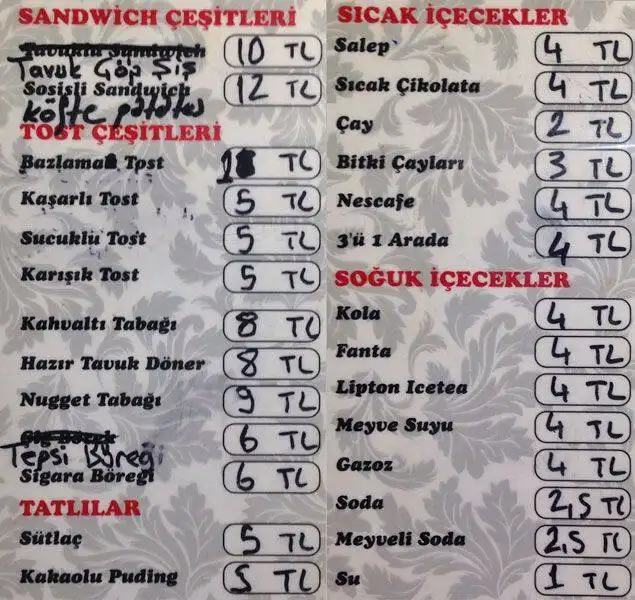 SANDWİCH ÇEŞİTLERİ
Tavuklu Sandwich 10 TL
Tavuk Çöp Şiş
Sosisli Sandwich 12 TL
köfte patates
TOST ÇEŞİTLERİ
Bazlama Tost TL
Kaşarlı Tost 5 TL
Sucuklu Tost 5 TL
Karışık Tost 5 TL
Kahvaltı Tabağı 8 TL
Hazır Tavuk Döner 8 TL
Nugget Tabağı 9 TL
Çiğ Börek 6 TL
Tepsi Böreği
Sigara Böreği 6 TL
TATLILAR
Sütlaç 5 TL
Kakaolu Puding 5 TL
SICAK İÇECEKLER
Salep 4 TL
Sıcak Çikolata 4 TL
Çay 2 TL
Bitki Çayları 3 TL
Nescafe 4 TL
3'ü 1 Arada 4 TL
SOĞUK İÇECEKLER
Kola 4 TL
Fanta 4 TL
Lipton Icetea 4 TL
Meyve Suyu 4 TL
Gazoz 4 TL
Soda 2,5 TL
Meyveli Soda 2,5 TL
Su 1 TL